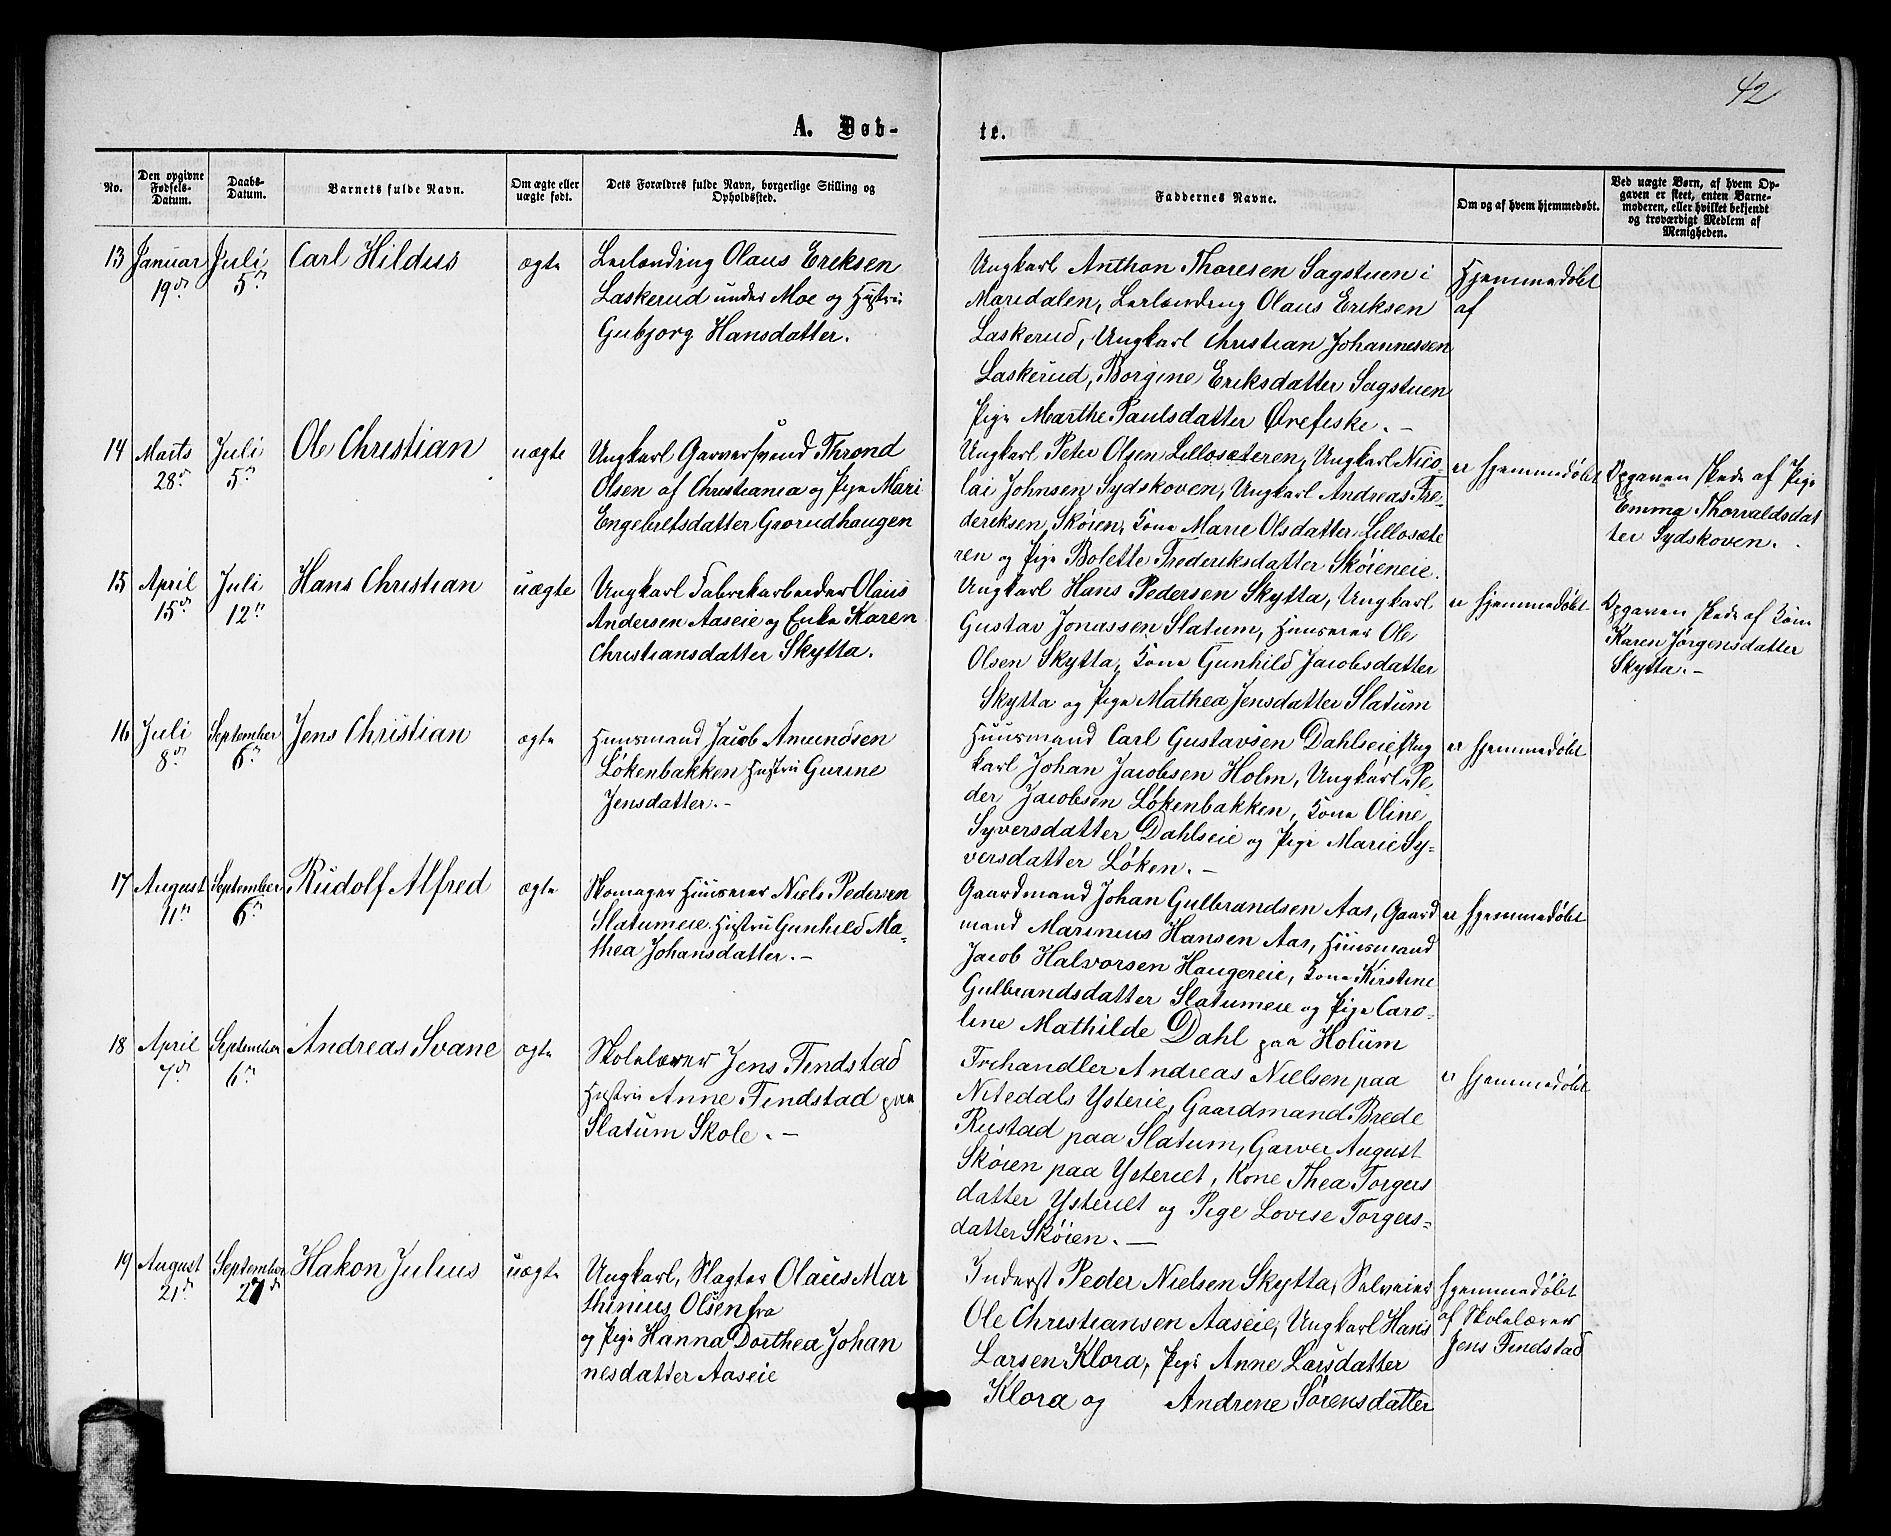 42
A. Døb-
te.
No.
Den opgivne
Fødsels-
Datum.
Daabs-
Datum.
Barnets fulde Navn.
Om ægte eller
uægte født.
Dets Forældres fulde Navn, borgerlige Stilling og
Opholdssted.
Faddernes Navne.
Om og af hvem hjemmedøbt.
Ved uægte Børn, af hvem Op-
gaven er skeet, enten Barne-
moderen, eller hvilket bekjendt
og troværdigt Medlem af
Menigheden.
13
Januar
19de
Juli
5te
Carl Hildus
ægte
Leilænding Olaus Eriksen
Laskerud under Moe og Hustru
Gubjorg Hansdatter.
Ungkarl Anthon Thoresen Sagstuen i
Maridalen, Leilænding Olaus Eriksen
Laskerud, Ungkarl Christian Johannessen
Laskerud, Borgine Eriksdatter Sagstuen
Pige Marthe Paulsdatter Ørefiske. –
Hjemmedøbt
af
14
Marts
28de
Juli
5te
Ole Christian
uægte
Ungkarl Garversvend Thrond
Olsen af Christiania og Pige Mari
Engebretsdatter Grorudhaugen
Ungkarl Peter Olsen Lillosæteren, Ungkarl Nico-
lai Johnsen Sydskoven, Ungkarl Andreas Fre-
deriksen Skøien, Kone Marie Olsdatter Lillosæte
ren og Pige Bolette Frederiksdatter Skøieneie.
er hjemmedøbt
Opgaven skede af Pige
Emma Thorvaldsdat
ter Sydskoven.
15
April
15de
Juli
12te
Hans Christian
uægte
Ungkarl Fabrikarbeider Olaus
Andersen Aaseie og Enke Karen
Christiansdatter Skytta.
Ungkarl Hans Pedersen Skytta, Ungkarl
Gustav Jonassen Slatum, Huuseier Ole
Olsen Skytta, Kone Gunhild Jacobsdatter
Skytta og Pige Mathea Jensdatter Slatum
er hjemmedøbt
Opgaven skede af Kone
Karen Jørgensdatter
Skytta. –
16
Juli
8de
September
6te
Jens Christian
ægte
Huusmand Jacob Amundsen
Løkenbakken Hustru Gurine
Jensdatter. –
Huusmand Carl Gustavsen Dahlseie, Ung
karl Johan Jacobsen Holm, Ungkarl Pe-
der Jacobsen Løkenbakken, Kone Oline
Syversdatter Dahlseie og Pige Marie Sy-
versdatter Løken. –
er hjemmedøbt
17
August
11te
September
6te
Rudolf Alfred
ægte
Skomager Huuseier Niels Pedersen
Slatumeie Hustru Gunhild Ma-
thea Johansdatter. –
Gaardmand Johan Gulbrandsen Aas, Gaard
mand Marinius Hansen Aas, Huusmand
Jacob Halvorsen Haugereie, Kone Kirstine
Gulbrandsdatter Slatumeie og Pige Caro-
line Mathilde Dahl paa Holum
er hjemmedøbt
18
April
7de
September
6te
Andreas Svane
ægte
Skolelærer Jens Findstad
Hustru Anne Findstad paa
Slatum Skole. –
Frihandler Andreas Nielsen paa
Nitedals Ysterie, Gaardmand Brede
Rustad paa Slatum, Garver August
Skøien paa Ysteriet, Kone Thea Torgers
datter Ysteriet og Pige Lovise Torgers-
datter Skøien. –
er hjemmedøbt
19
August
21de
September
27de
Hakon Julius
uægte
Ungkarl, Slagter Olaus Mar
thinius Olsen fra
og Pige Hanna Dorthea Johan
nesdatter Aaseie
Inderst Peder Nielsen Skytta, Selveier
Ole Christiansen Aaseie, Ungkarl Hans
Larsen Klora, Pige Anne Larsdatter
Klora og Andrine Sørensdatter
Hjemmedøbt
af Skolelærer
Jens Findstad